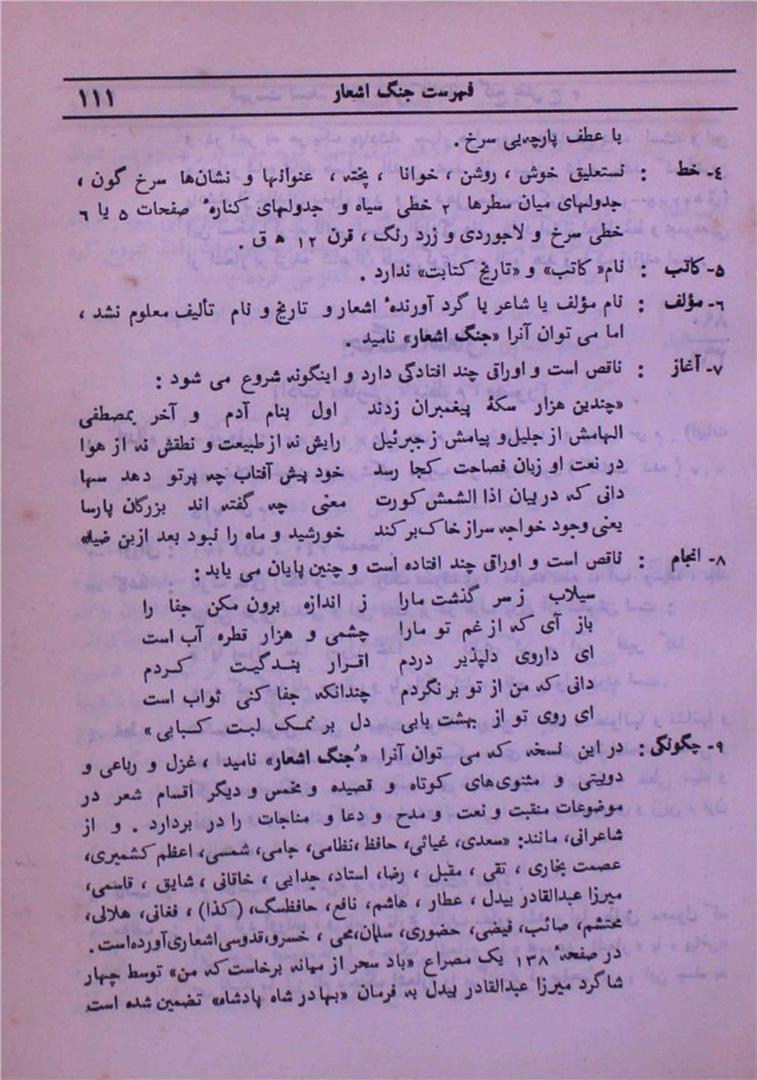 فهرست جنگ اشعار ۱۱۱
با عطف پارچه‌یی سرخ .
٤- خط : نستعلیق خوش ، روشن ، خوانا ، پخته ، عنوانها و نشان‌ها سرخ گون ،
جدولهای میان سطرها ۲ خطی سیاه و جدولهای کنارهٔ صفحات ۵ یا ٦
خطی سرخ و لاجوردی و زرد رنگ ، قرن ۱۲ ه ق .
۵- کاتب : نام« کاتب» و «تاریخ کتابت» ندارد .
٦- مؤلف : نام مؤلف یا شاعر یا گرد آورندهٔ اشعار و تاریخ و نام تألیف معلوم نشد ،
اما می توان آنرا «جنگ اشعار» نامید .
۷- آغاز : ناقص است و اوراقی چند افتادگی دارد و اینگونه شروع می شود :
«چندین هزار سکهٔ پیغمبران زدند اول بنام آدم و آخر بمصطفی
الهامش از جلیل و پیامش ز جبرئیل رایش نه از طبیعت و نطقش نه از هوا
در نعت او زبان فصاحت کجا رسد خود پیش آفتاب چه پرتو دهد سها
دانی که در بیان اذا الشمش کورت معنی چه گفته اند بزرگان پارسا
یعنی وجود خواجه سراز خاک بر کند خورشید و ماه را نبود بعد ازین ضیا»
۸- انجام : ناقص است و اوراقی چند افتاده است و چنین پایان می یابد :
سیلاب ز سر گذشت مارا ز اندازه برون مکن جفا را
باز آی که از غم تو مارا چشمی و هزار قطره آب است
ای داروی دلپذیر دردم اقرار بندگیت کردم
دانی که من از تو بر نگردم چندانکه جفا کنی ثواب است
ای روی تو از بهشت بابی دل بر نمک لبت کبابی»
۹- چگونگی : در این نسخه که می توان آنرا «جُنگ اشعار» نامید ، غزل و رباعی و
دوبیتی و مثنوی‌های کوتاه و قصیده و مخمس و دیگر اقسام شعر در
موضوعات منقبت و نعت و مدح و دعا و مناجات را در بردارد . و از
شاعرانی، مانند: «سعدی، غیاثی، حافظ، نظامی، جامی، شمسی، اعظم کشمیری،
عصمت بخاری ، تقی ، مقبل ، رضا، استاد، جدایی ، خاقانی ، شایق ، قاسمی،
میرزا عبدالقادر بیدل ، عطار ، هاشم، نافع، حافظسگ، (کذا) ، فغانی، هلالی،
محتشم، صائب، فیضی، حضوری، سلمان، محی ، خسرو، قدوسی اشعاری آورده است.
در صفحهٔ ۱۳۸ یک مصراع «باد سحر از میانه برخاست که من» توسط چهار
شاگرد میرزا عبدالقادر بیدل به فرمان «بهادر شاه پادشاه» تضمین شده است